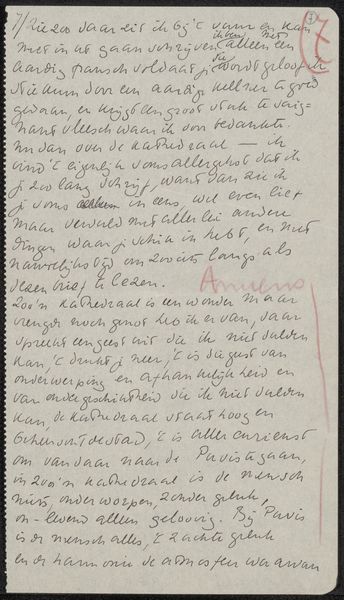 7/ Zie zoo daar zit ik bij 't vuur en kan
met in uit gaan schrijven, alleen een
aardig fransch soldaatje wordt geloof ik
stiekum door een aardige kellner te goed
gedaan, en krijgt een groot stuk te
nant vleesch waar ik voor bedankte.
nu dan over de Kathedraal — ik
vind 't eigenlijk soms allergekst dat ik
je zoo lang schrijf, want dan zie ik
je soms ineens, wel even lief
maar verveeld met allerlei andere
dingen waar je schik in hebt, en met
nauwelijks tijd om zoo iets langs als
dezen brief te lezen.
Amiens
Zoo'n Kathedraal is een wonder maar
vreugde noch genot heb ik ervan, daar
spreekt een geest uit die ik niet dulden
kan, 't drukt je neer, 't is de geest van
onderwerping en afhankelijkheid en
van ondergeschiktheid die ik niet dulden
kan, de Kathedraal staat hoog en
de stad, 't is aller curieust
om van daar naar de Puvis te gaan,
in zoo'n Kathedraal is de mensch
niets, onderworpen, zonder geluk,
on-levend alleen geloovig. Bij Puvis
is de mensch alles, 't zachte geluk
en de harmonie de atmosfeer waarvan
7